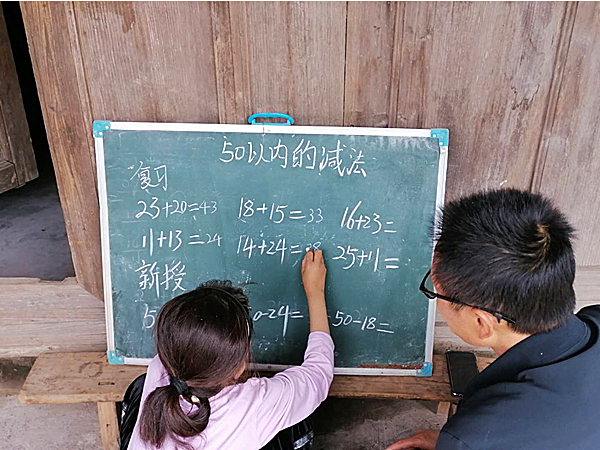 50以内的减法
复习
23+20=43 18+15=33 16+23=
11+13=24 14+24=38 25+11=
新授
5 0-24= 50-18=